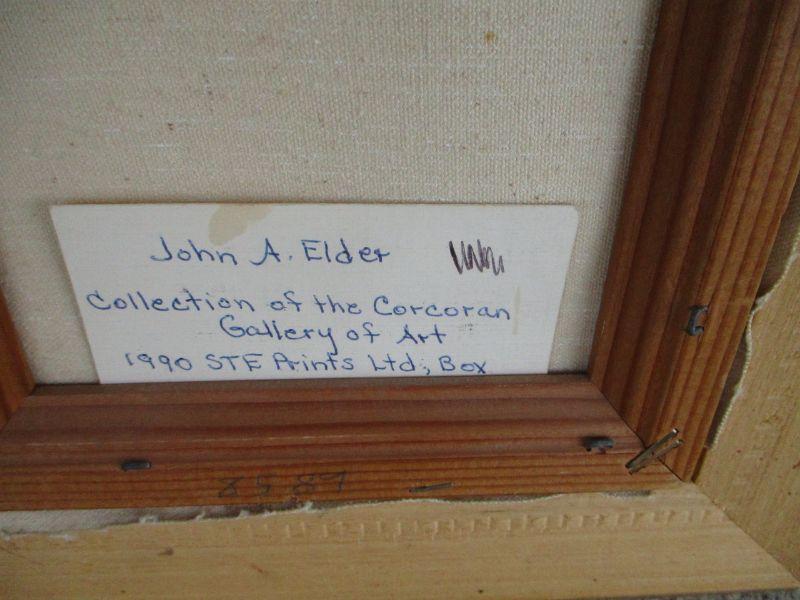 John A. Elder
Collection of the Corcoran
Gallery of Art
1990 STE Prints Ltd., Box